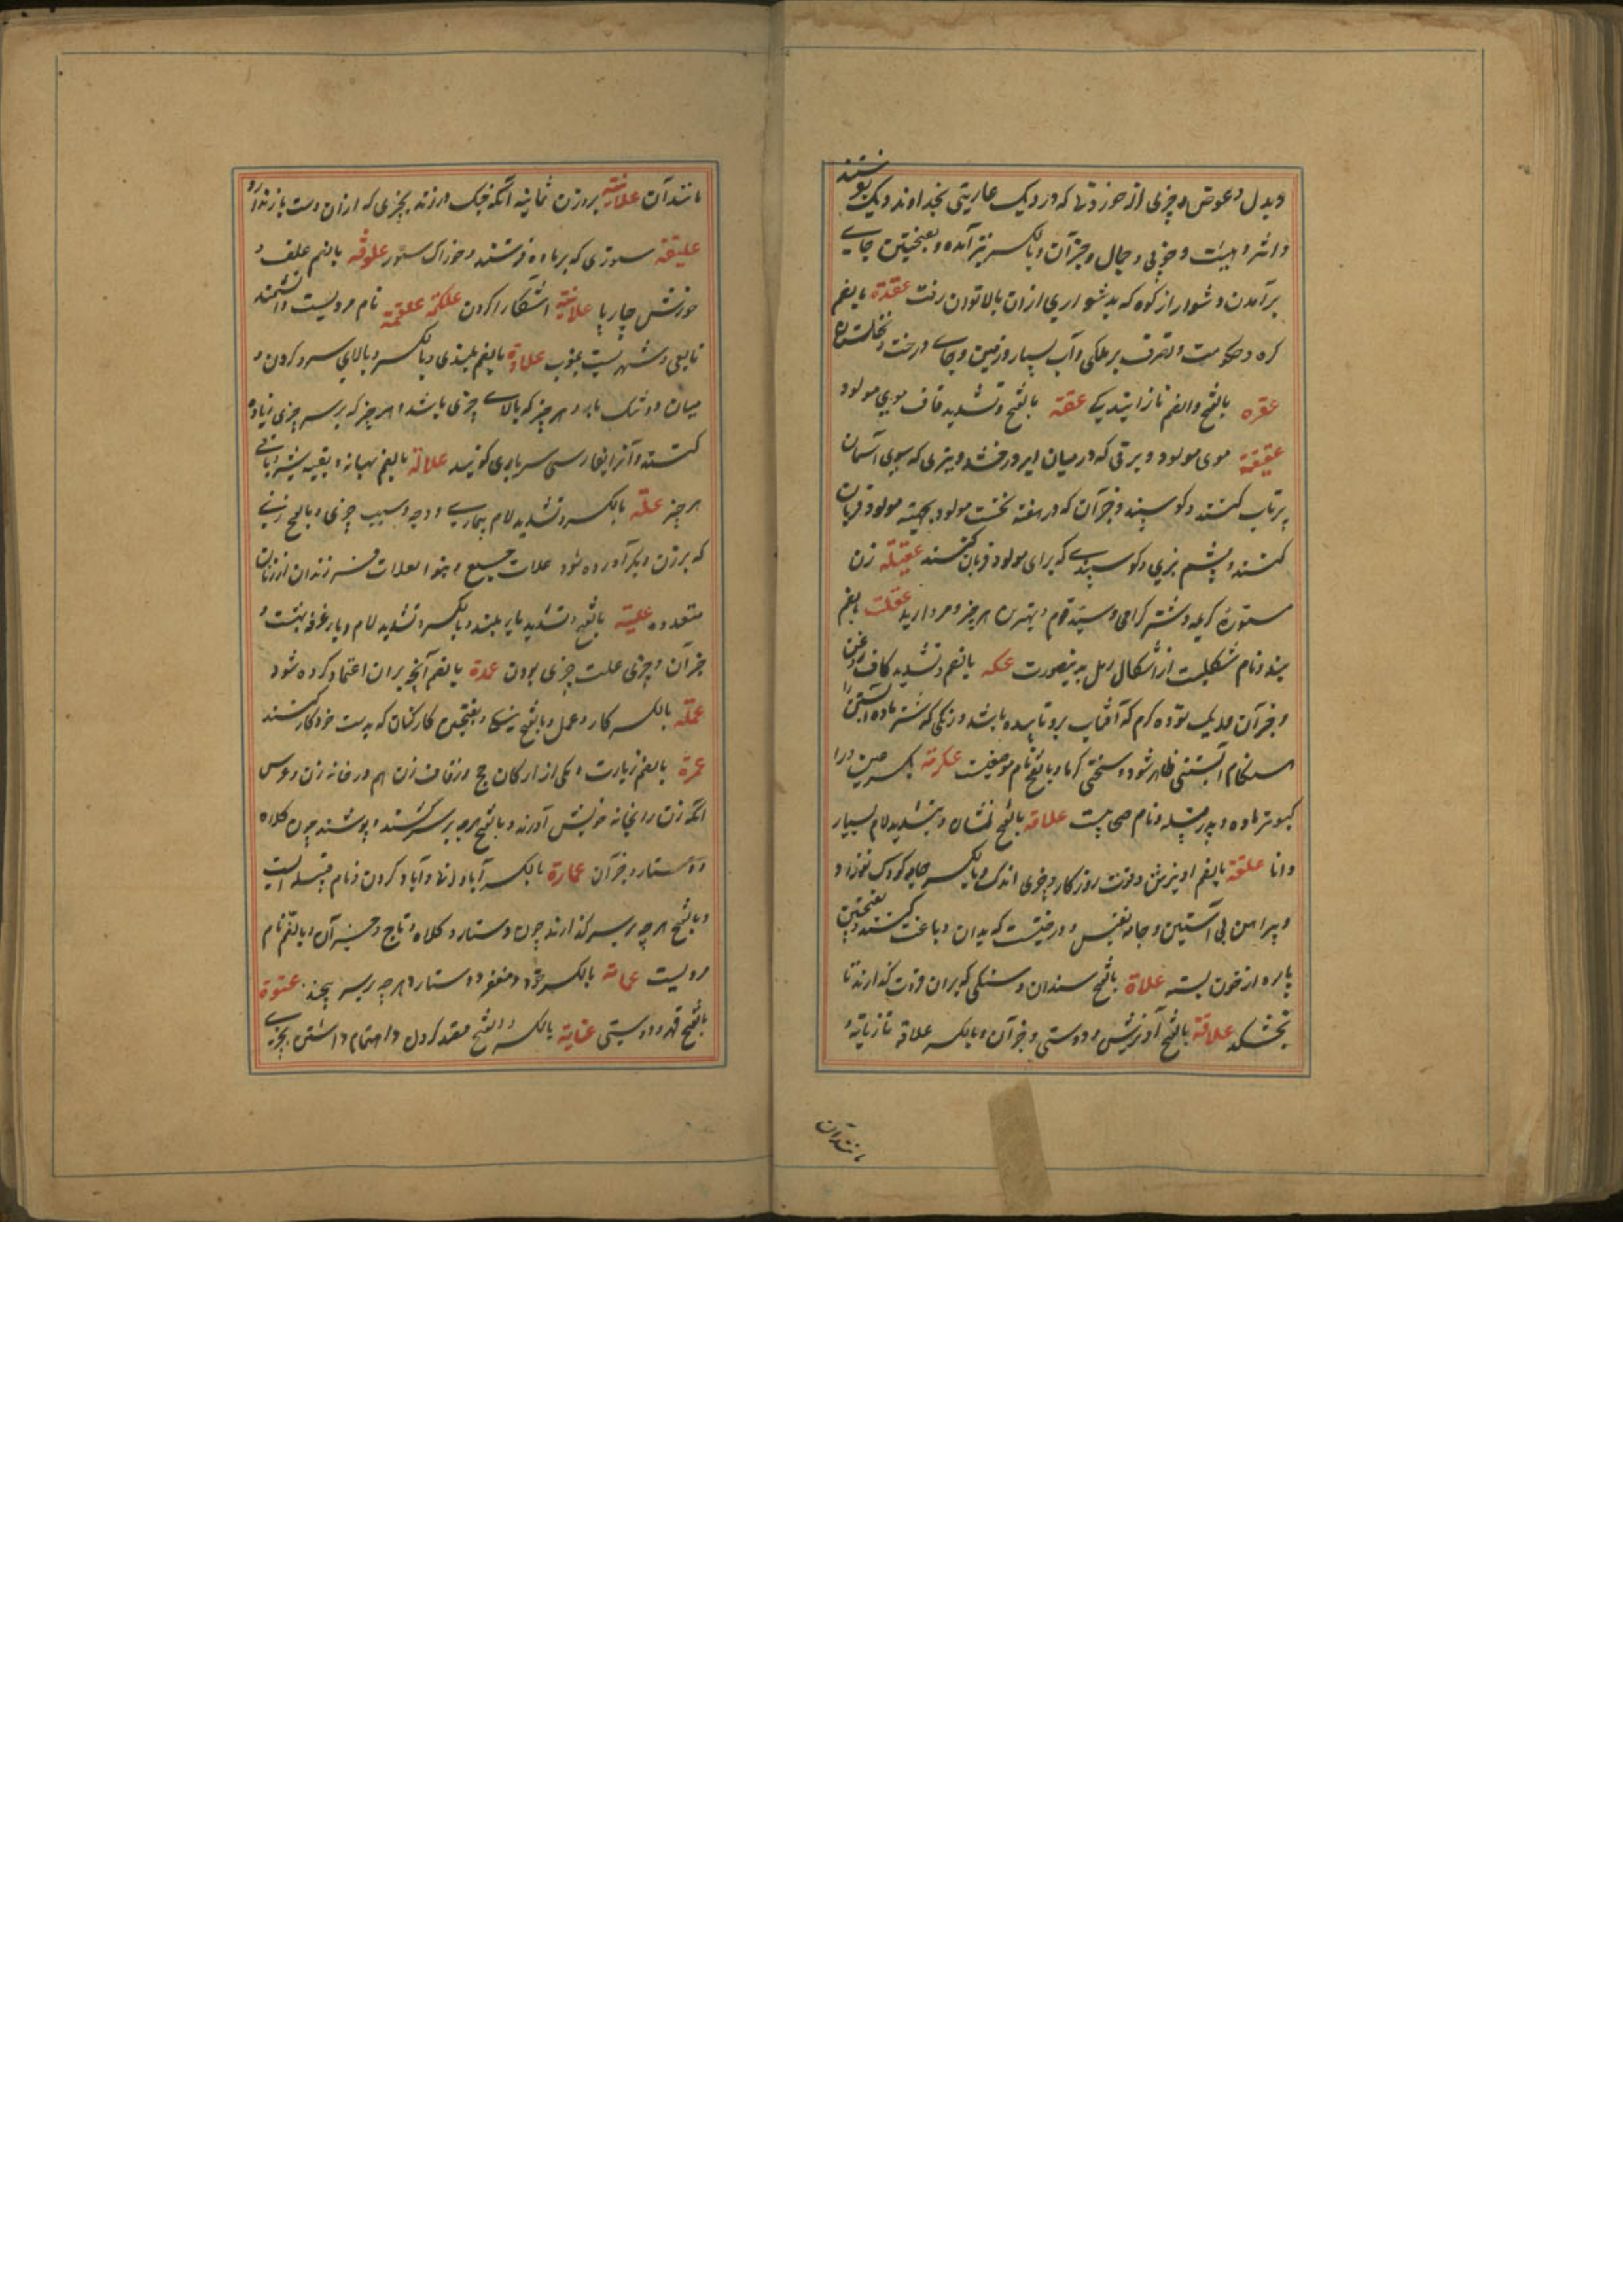 وبدل و عوض و چیزی از خوردنیها که در دیک عاریتی بخداوند دیک فرستند
واثر و هیئت و خوبی و جمال و جز آن و بالکسر نیز آمده و بفتحتین جای
برآمدن دشوار از کوه که بدشواری ازان بالا توان رفت عقدة بالضم
کره و حکومت و تصرف بر ملکی و آب بسیار و زمین و جای درخت و نخلستان
عقره بالفتح والضم نازایندیکی عقة بالفتح و تشدید قاف موی مولود
عقیقة موی مولود و برقی که در میان ابر درخشد و تیری که بسوی آسمان
پرتاب کنند و کوسپند و جز آن که در هفته نخست مولود بجهته مولود قربان
کنند و پشم بزی و کوسپندی که برای مولود قربان کنند عقیلة زن
ستوره کریمه و شتر کرامی و سید قوم و بهترین هر چیز و مروارید عقلت بالضم
بند و نام شکلیست از اشکال رمل بدینصورت عکه بالضم و تشدید کاف روغن
و جز آن و دیک توده کرم که آفتاب برو تابیده باشد و رنکی که شتر ماده آبستن را
هنکام آبستنی ظاهر شود و سختی کرما و بالفتح نام موضعیست عکرمة بکسر عین و را
کبوتر ماده و پدر قبیله و نام صحابیست علامة بالفتح نشان و بتشدید لام بسیار
دانا علقة بالضم اویزش و قوت روزکار و چیزی اندک و بالکسر جامه کودک نوزاد و
پیراهن بی آستین و جامه نفیس و درختیست که بدان دباغت کنند و بفتحتین
پاره از خون بسته علاة بالفتح سندان و سنکی که بران قروت کذارند تا
بخشکد علاقة بالفتح آویزش و دوستی و جز آن و بالکسر علاقه تازیانه و
مانند آن
مانند آن علانیة بروزن ثمانیه آنکه چنک در زند بچیزی که ازان دست باز ندارد
علیقة ستوری که بر ماده فرستند و خوراک ستور علوفة بالضم علف و
خورش چارپا علانیة آشکارا کردن علکمة علقمة نام مردیست دانشمند
تابعی و شهریست بغرب علاوة بالضم بلندی و بالکسر و بالای سر و کردن و
میان دو تنک بار و هر چیز که بالای چیزی باشد و هر چیز که بر سر چیزی زیاده
کنند و آنرا بفارسی سرباری کویند علالة بالضم بهانه و بقیه شیر و باقی
هر چیز علة بالکسر و تشدید لام بیماری و وجه و سبب چیزی و بالفتح زنی
که بر زن دیکر آورده شود علات جمع و بنوا لعلات فرزندان از زنان
متعدده علیة بالفتح و تشدید یا بلند و بالکسر و تشدید لام و یا غرفه بهشت و
جز آن و چیزی علت چیزی بودن عمدة بالضم آنچه بران اعتماد کرده شود
عملة بالکسر کار و عمل و بالفتح و بفتحتین کارکنان که بدست خود کار کنند
عمرة بالضم زیارت و یکی از ارکان حج و زفاف زن هم در خانه زن و عروس
آنکه زن را بخانه خویش آورند و بالفتح هرچه بر سر کشند و پوشند چون کلاه
و دستار و جز آن عمارة بالکسر آبادانی و آباد کردن و نام قبیله ایست
و بالفتح هرچه بر سر کذارند چون دستار و کلاه و تاج و جز آن و بالضم نام
مردیست عمامة بالکسر خود و مغفر و دستار و هرچه بر سر پیچند عنوة
بالفتح قهر و دوستی عنایة بالکسر والفتح قصد کردن و اهتمام داشتن بچیزی